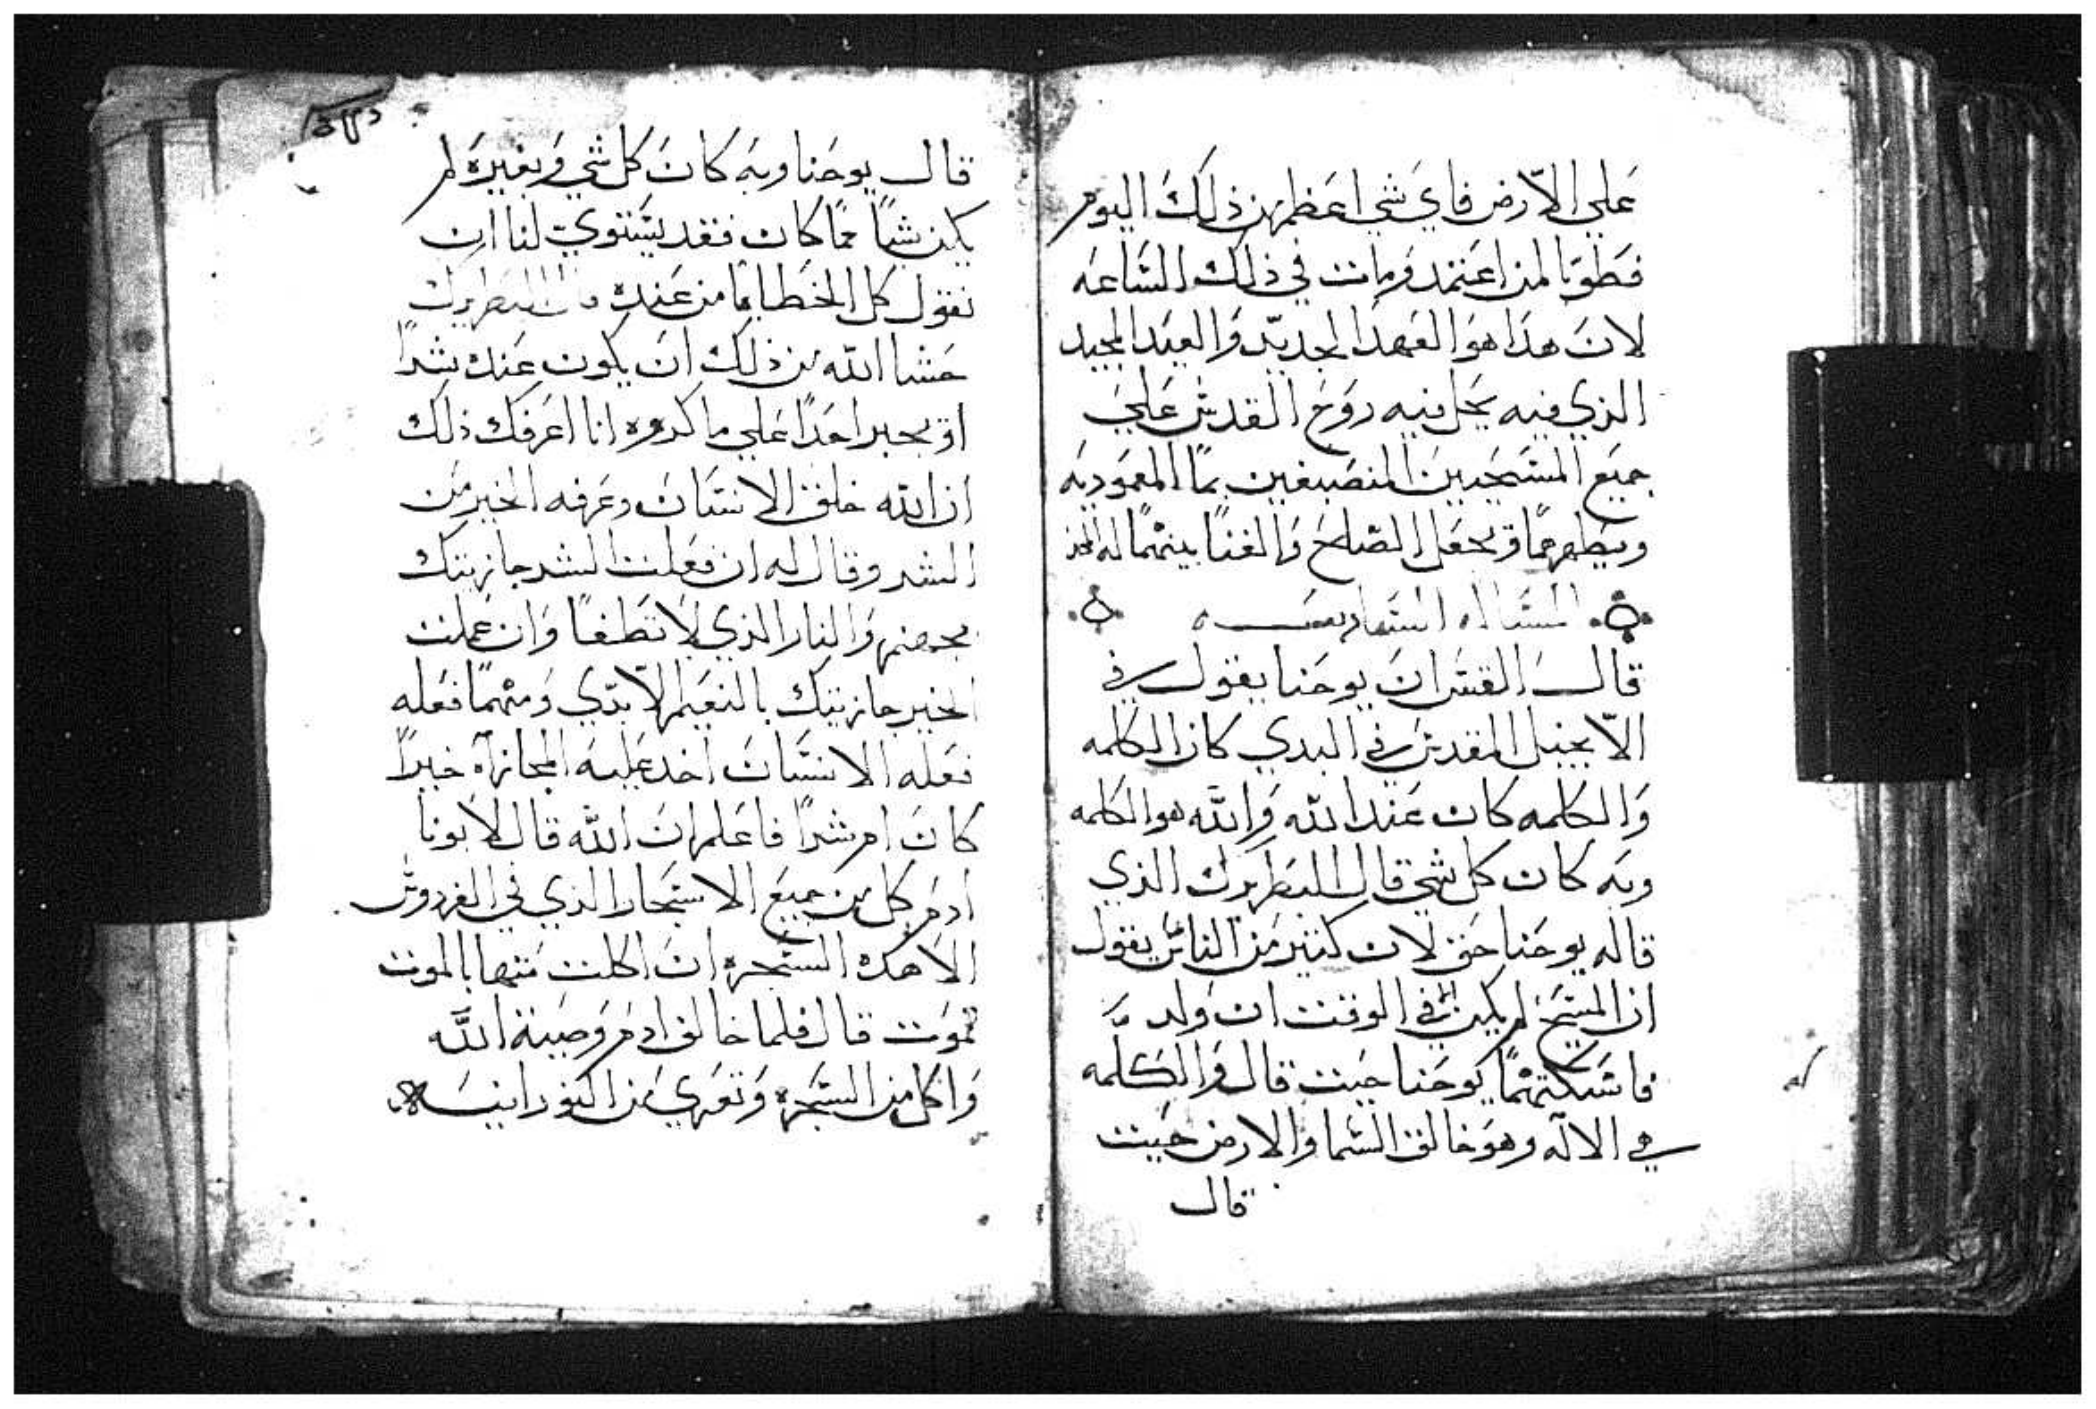 علي الارض فاي شي اعظم من ذلك اليوم
فطوبا لمن اعتمد ومات في ذلك الساعه
لان هذا هو العهد الجديد والعيد المجيد
الذي فيه يحل فيه روح القدس علي
جميع المستجدين المنصبغين بما المعموديه
ويطهرهما ويجعل الصلح والغنا بينهما له المجد
المساله السادسه
قال القس ان يوحنا يقول في
الانجيل المقدس في البدي كان الكلمه
والكلمه كان عند الله والله هو الكلمه
وبه كان كل شي قال البطريرك الذي
قاله يوحنا حق لان كثير من الناس يقول
ان المسيح لم يكن في الوقت ان ولد
فاسكتهما يوحنا حيت قال والكلمه
هي الاله وهو خالق السما والارض حيت
قال
قال يوحنا وبه كان كل شي وبغيره لم
يكن شيا مما كان فقد يستوي لنا ان
نقول كل الخطايا من عنده قال البطريرك
حشا الله من ذلك ان يكون عنده شرا
او يجبر احدا علي ما كروه انا اعرفك ذلك
ان الله خلق الانسان وعرفه الخير من
الشر وقال له ان فعلت الشر جازيتك
بجهنم والنار الذي لا تطفا وان عملت
الخير جازيتك بالنعيم الابدي ومهما فعله
فعله الانسان اخد عليه المجازاه خيرا
كان ام شرا فاعلم ان الله قال لابونا
ادم كل من جميع الاشجار الذي في الفردوس
الا هده الشجره ان اكلت منها بالموت
تموت قال فلما خالف ادم وصية الله
واكل من الشجره وتعري من النورانيه